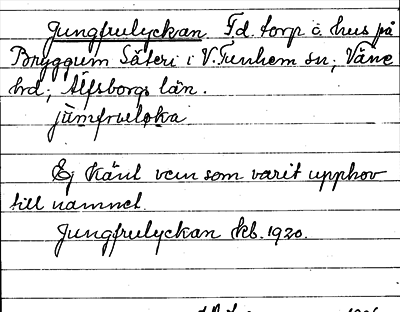 Jungfrulyckan. F.d. torp o. hus på
Bryggum Säteri i V. Tunhem sn; Väne
hd; Älfsborgs län.
jùmfruelo̝ka
Ej känt vem som varit upphov
till namnet.
Jungfrulyckan kb. 1920.